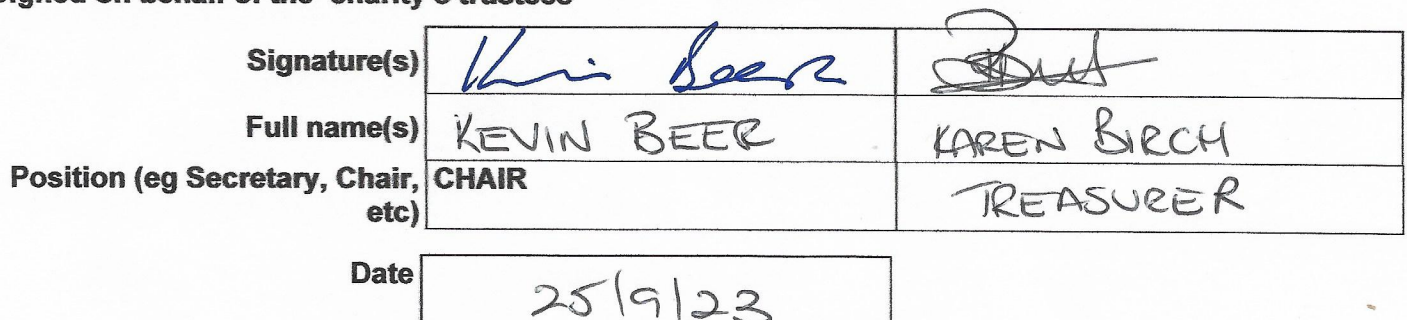 Signature(s) Kevin Beer
Full name(s) KEVIN BEER KAREN BIRCH
Position (eg Secretary, Chair, etc) CHAIR TREASURER
Date 25/9/23